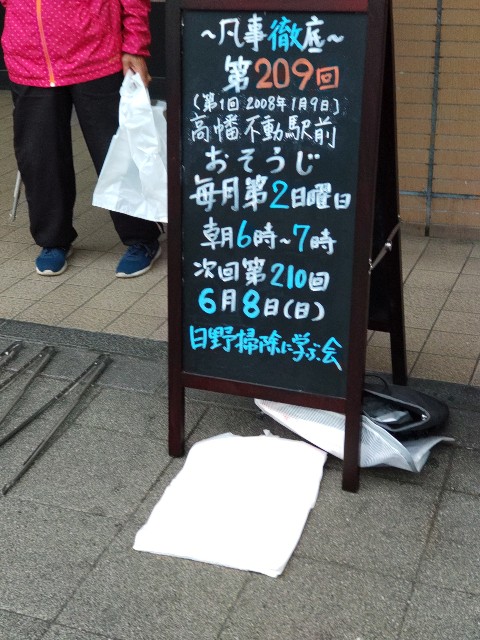 ～凡事徹底～
第209回
(第1回 2008年1月9日)
高幡不動駅前
おそうじ
毎月第2日曜日
朝6時～7時
次回第210回
6月8日(日)
日野掃除に学ぶ会